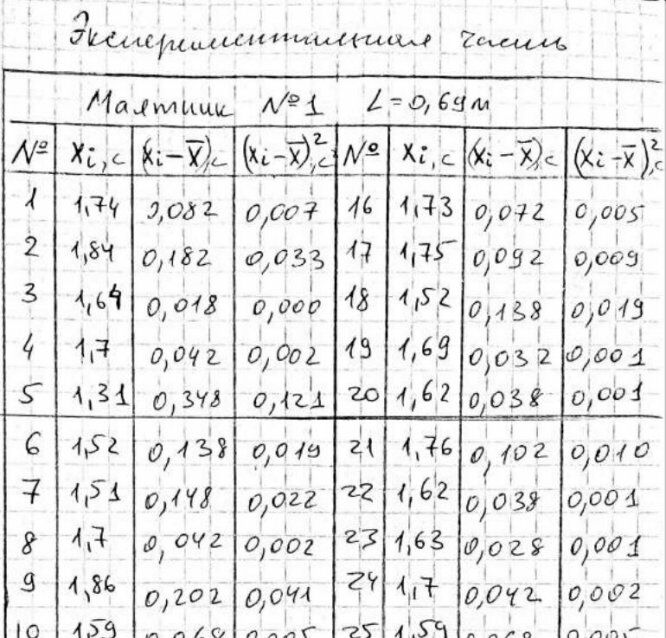 Экспериментальная часть
Маятник №1 L=0,69м
№ xi,с (xi-x̄),с (xi-x̄)²,с № xi,с (xi-x̄),с (xi-x̄)²,с
1 1,74 0,082 0,007 16 1,73 0,072 0,005
2 1,84 0,182 0,033 17 1,75 0,092 0,009
3 1,64 0,018 0,000 18 1,52 0,138 0,019
4 1,7 0,042 0,002 19 1,69 0,032 0,001
5 1,31 0,348 0,121 20 1,62 0,038 0,001
6 1,52 0,138 0,019 21 1,76 0,102 0,010
7 1,51 0,148 0,022 22 1,62 0,038 0,001
8 1,7 0,042 0,002 23 1,63 0,028 0,001
9 1,86 0,202 0,041 24 1,7 0,042 0,002
10 1,59 25 1,59